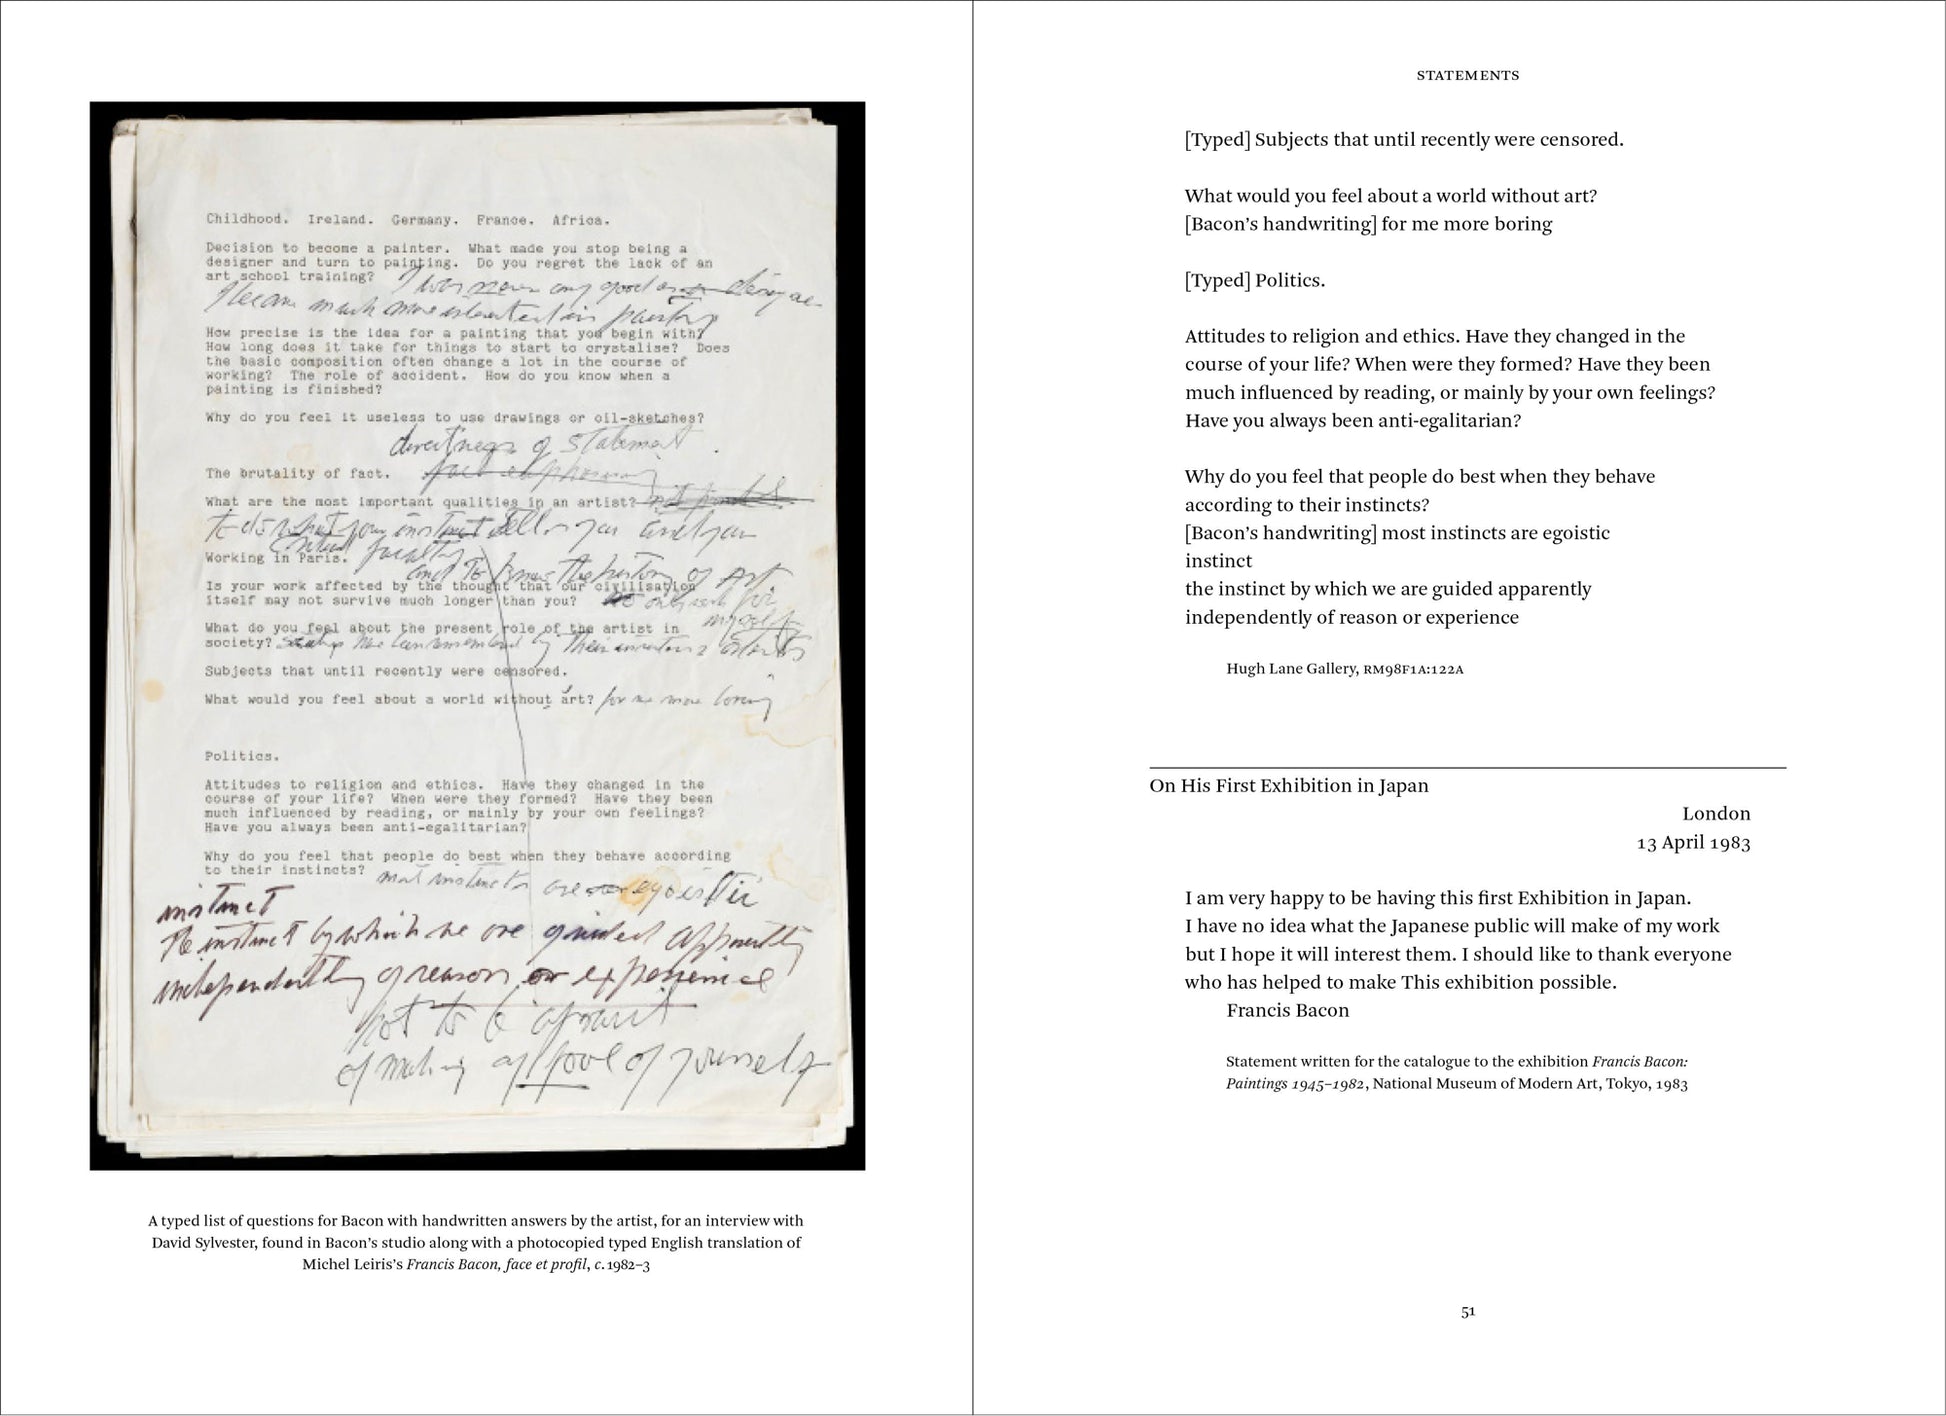 Childhood. Ireland. Germany. France. Africa.
Decision to become a painter. What made you stop being a
designer and turn to painting. Do you regret the lack of an
art school training? I was never any good as a designer
I became much more interested in painting
How precise is the idea for a painting that you begin with?
How long does it take for things to start to crystalise? Does
the basic composition often change a lot in the course of
working? The role of accident. How do you know when a
painting is finished?
Why do you feel it useless to use drawings or oil-sketches?
directness of statement
The brutality of fact.
What are the most important qualities in an artist?
to do what your instinct tells you and your
critical faculty
Working in Paris.
and to know the history of Art.
Is your work affected by the thought that our civilisation
itself may not survive much longer than you? only work for
myself
What do you feel about the present role of the artist in
society? by their artists
Subjects that until recently were censored.
What would you feel about a world without art? for me more boring
Politics.
Attitudes to religion and ethics. Have they changed in the
course of your life? When were they formed? Have they been
much influenced by reading, or mainly by your own feelings?
Have you always been anti-egalitarian?
Why do you feel that people do best when they behave according
to their instincts? most instincts are egoistic
instinct
the instinct by which we are guided apparently
independently of reason or experience
not to be afraid
of making a fool of yourself
A typed list of questions for Bacon with handwritten answers by the artist, for an interview with
David Sylvester, found in Bacon’s studio along with a photocopied typed English translation of
Michel Leiris’s Francis Bacon, face et profil, c. 1982–3
STATEMENTS
[Typed] Subjects that until recently were censored.
What would you feel about a world without art?
[Bacon’s handwriting] for me more boring
[Typed] Politics.
Attitudes to religion and ethics. Have they changed in the
course of your life? When were they formed? Have they been
much influenced by reading, or mainly by your own feelings?
Have you always been anti-egalitarian?
Why do you feel that people do best when they behave
according to their instincts?
[Bacon’s handwriting] most instincts are egoistic
instinct
the instinct by which we are guided apparently
independently of reason or experience
Hugh Lane Gallery, RM98F1A:122A
On His First Exhibition in Japan
London
13 April 1983
I am very happy to be having this first Exhibition in Japan.
I have no idea what the Japanese public will make of my work
but I hope it will interest them. I should like to thank everyone
who has helped to make This exhibition possible.
Francis Bacon
Statement written for the catalogue to the exhibition Francis Bacon:
Paintings 1945–1982, National Museum of Modern Art, Tokyo, 1983
51